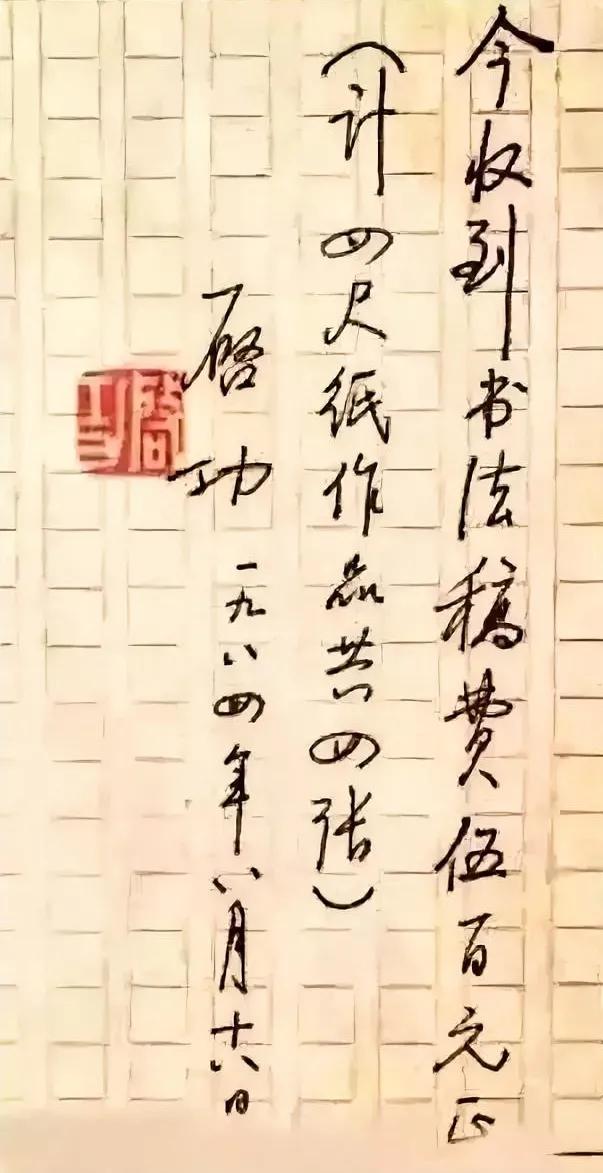 今收到书法稿费伍百元正
（计四尺纸作品共四张）
启功 一九八四年八月十六日
启功